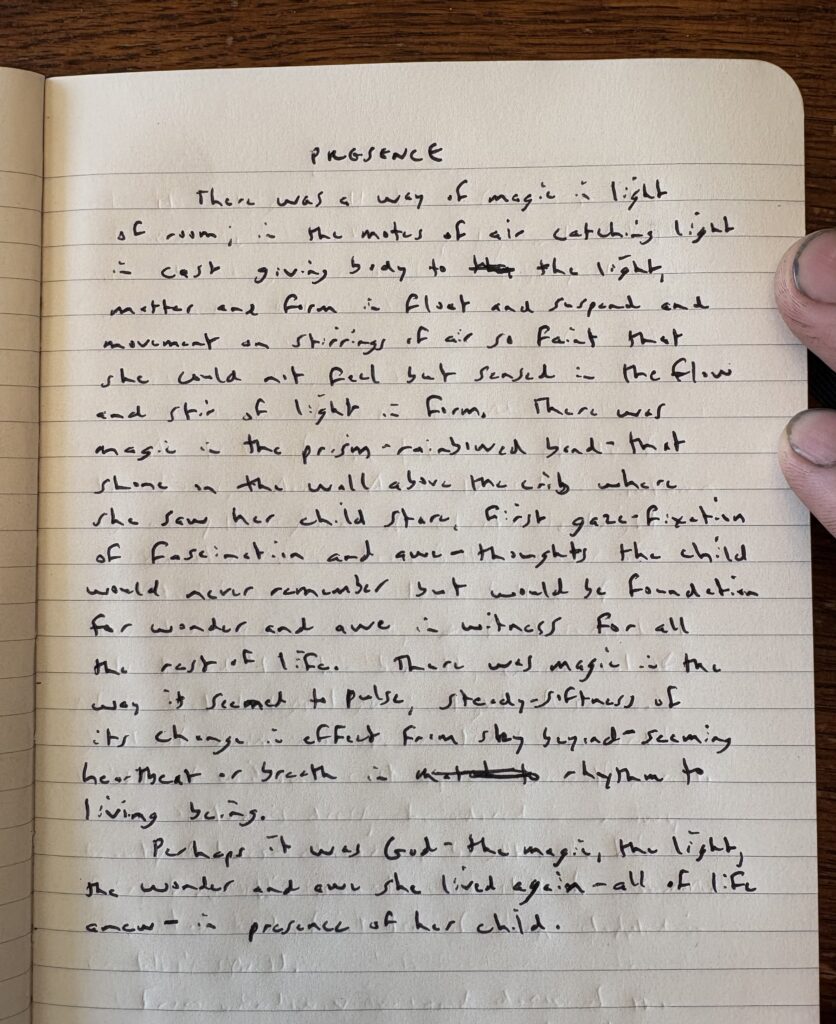 PRESENCE
There was a way of magic in light
of room; in the motes of air catching light
in cast giving body to the light,
matter and form in float and suspend and
movement on stirrings of air so faint that
she could not feel but sensed in the flow
and stir of light in form. There was
magic in the prism-rainbowed band-that
shone on the wall above the crib where
she saw her child stare, first gaze-fixation
of fascination and awe-thoughts the child
would never remember but would be foundation
for wonder and awe in witness for all
the rest of life. There was magic in the
way it seemed to pulse, steady-softness of
its change in effect from sky beyond-seeming
heartbeat or breath in rhythm to
living being.
Perhaps it was God-the magic, the light,
the wonder and awe she lived again-all of life
anew-in presence of her child.